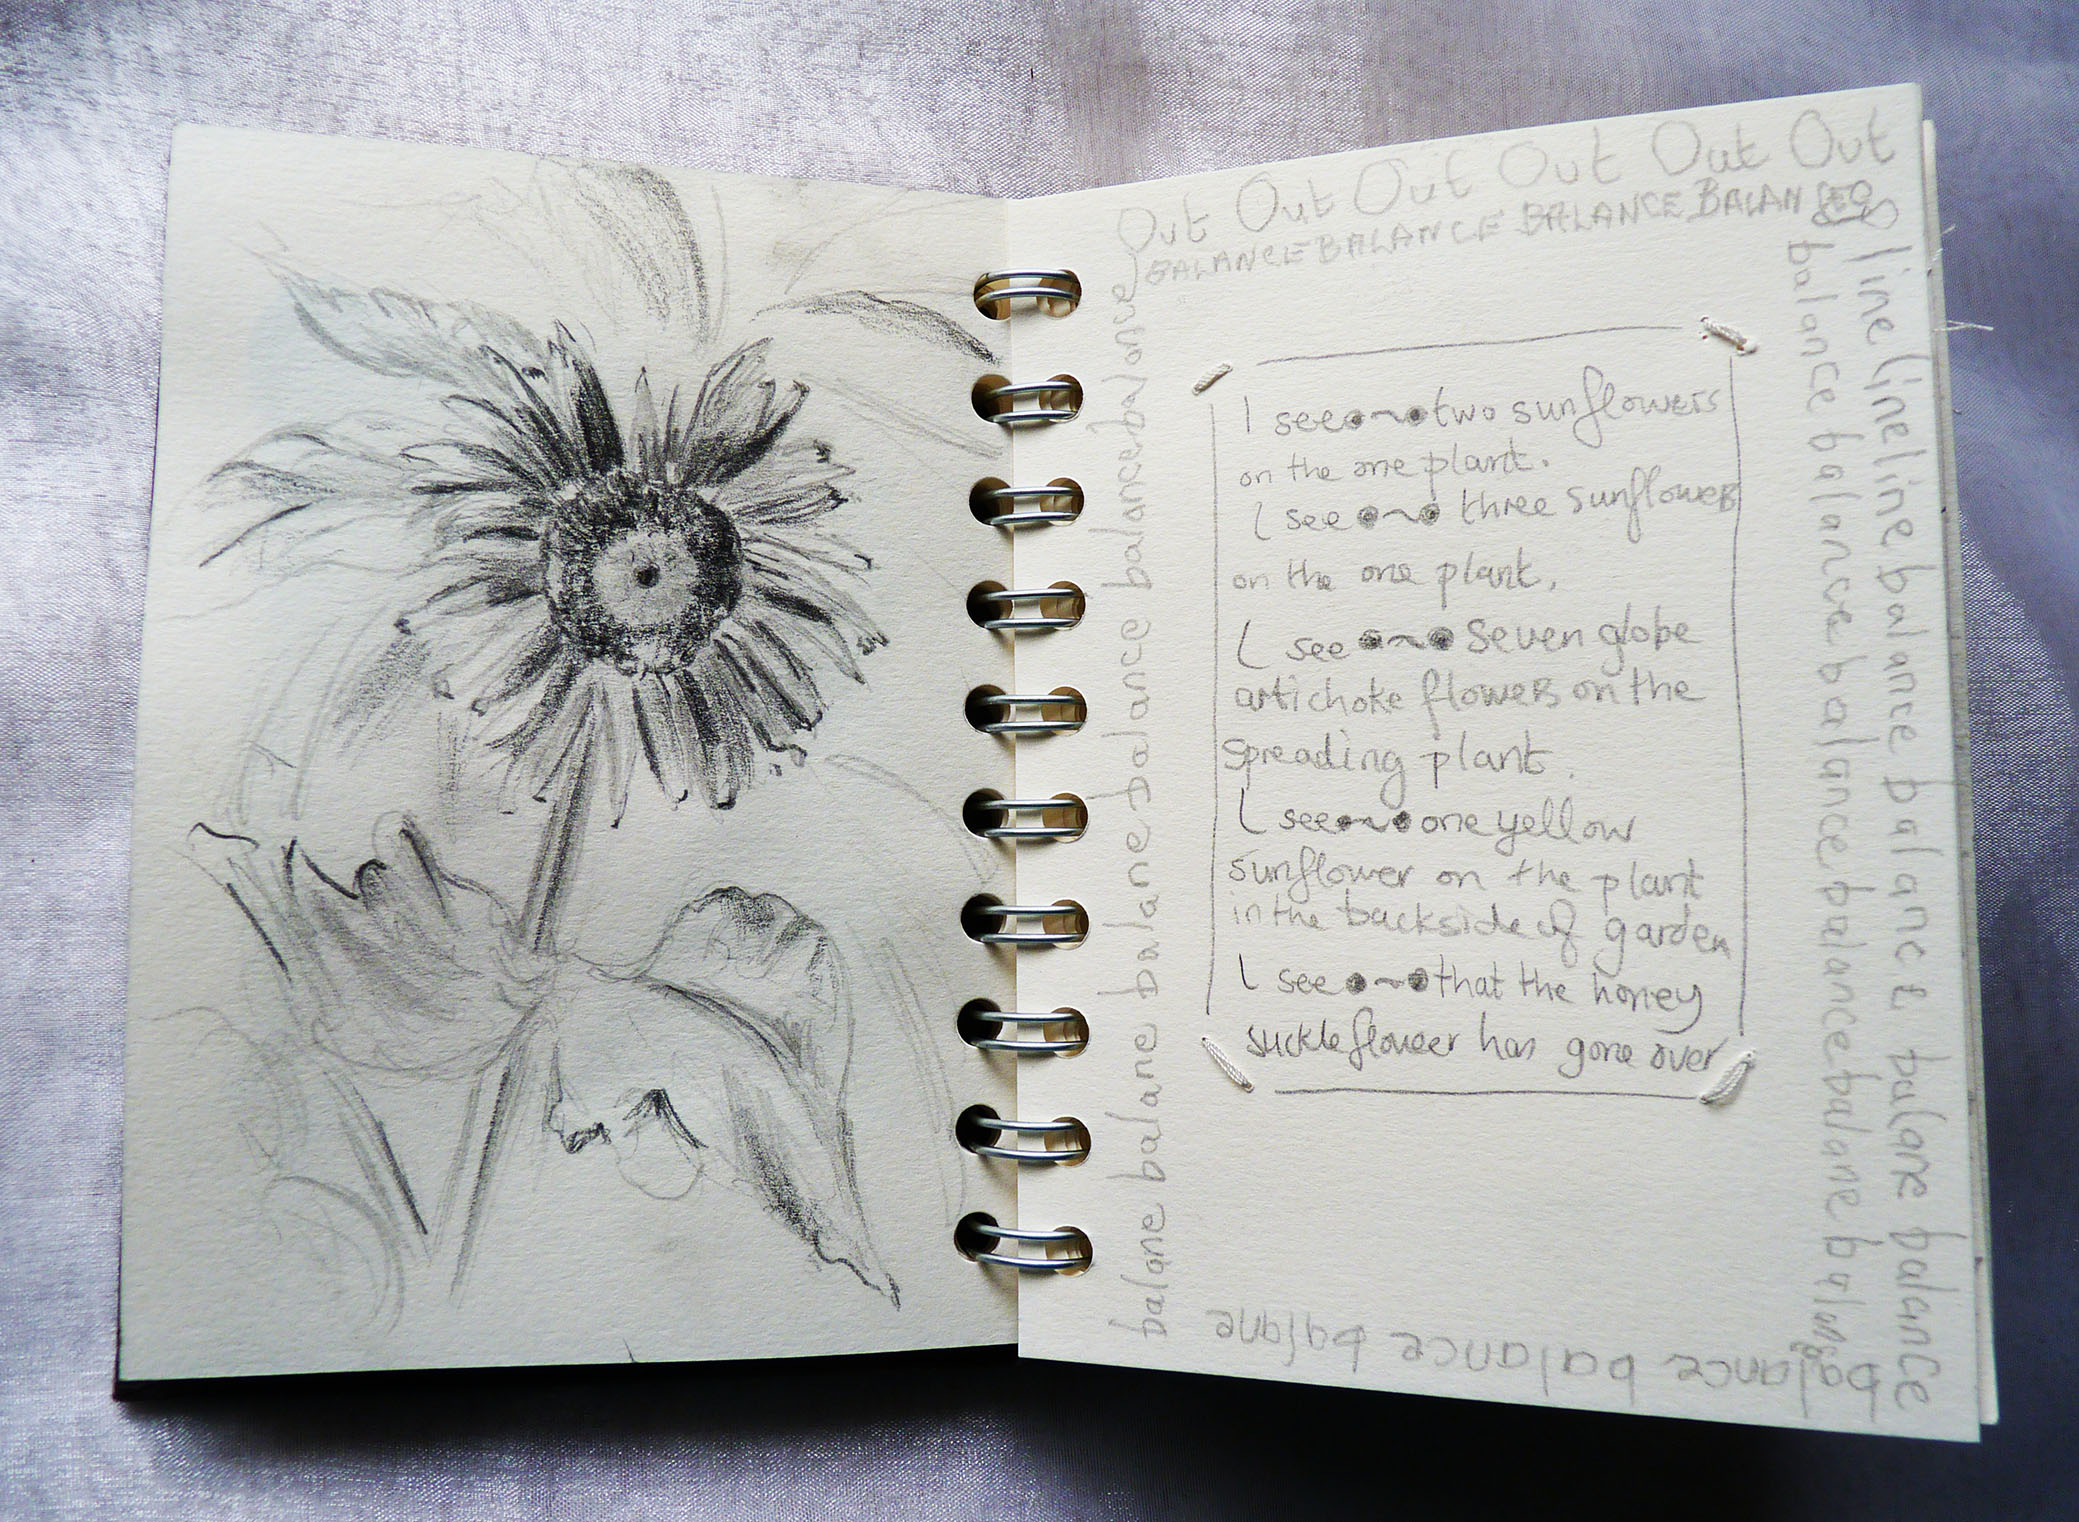 Out Out Out Out Out Out
BALANCE BALANCE BALANCE BALANCE
I see two sunflowers
on the one plant.
I see three sunflowers
on the one plant.
I see seven globe
artichoke flowers on the
spreading plant.
I see one yellow
sunflower on the plant
in the backside of garden
I see that the honey
suckle flower has gone over
line line line balance balance balance balane balance
balance balance balance balance balance balance balane balane balance
balance balance balance balane
balane balane balane balane balance balance balance balance